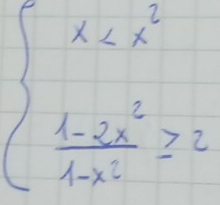 x < x²
(1-2x²)/(1-x²) ≥ 2